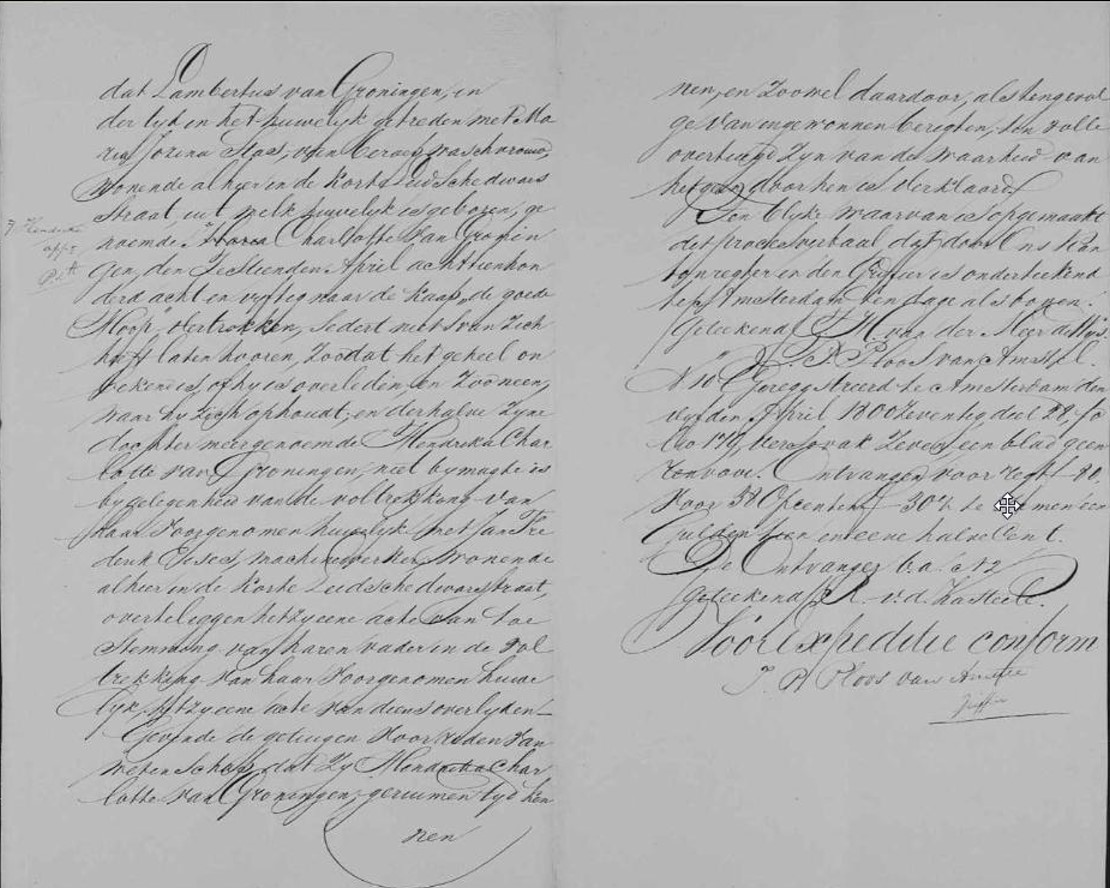 dat Lambertus van Groningen, in
der tyd in het huwelyk getreden met Ma
ria Jozina Stas, van beroep waschvrouw,
wonende alhier in de Korte Leidschedwars
straat, uit welk huwelyk is geboren, ge
noemde Maria Charlotte van Gronin
gen, den Zestienden April achttienhon
derd acht en vyftig naar de Kaap de goede
Hoop, vertrokken, sedert niets van zich
heeft laten hooren, zoodat het geheel on
bekend is, of hy is overleden en zoo neen,
waar hy zich ophoudt, en derhalve zyne
dochter meergenoemde Hendrika Char
lotte van Groningen, niet by magte is
by gelegenheid van de voltrekking van
haar voorgenomen huwelyk met Jan Fre
derik machinewerker, wonende
alhier in de Korte Leidschedwarsstraat,
over te leggen hetzy eene acte van toe
stemming van haren vader in de vol
trekking van haar voorgenomen huwe
lyk, hetzy eene acte van diens overlyden
Gevende de getuigen voor reden van
wetenschap, dat zy Hendrika Char
lotte van Groningen, geruimen tyd ken
nen
Hendrika
nen, en zoowel daardoor, als tengevol
ge van ingewonnen berigten, ten volle
overtuigd zyn van de waarheid van
hetgeen door hen is verklaard.
Ten blyke waarvan is opgemaakt
dit proces verbaal dat door Ons Kan
tonregter en den Griffier is onderteekend
te Amsterdam ten dage als boven.
(Geteekend) van der Meer de Wys.
J. P. Ploos van Amstel.
Geregistreerd te Amsterdam den
April 1800 zeventig deel 28, fo
lio 179, verso vak zeven, een blad geen
renvooi. Ontvangen voor regt f -.80.
Voor 38 Opcenten f -.30½ te men een
Gulden tien en eene halve Cent.
De Ontvanger b.a. No 2
(geteekend) R. v.d. Kasteele.
Voor Expeditie conform
J. P. Ploos van Amstel
Griffier